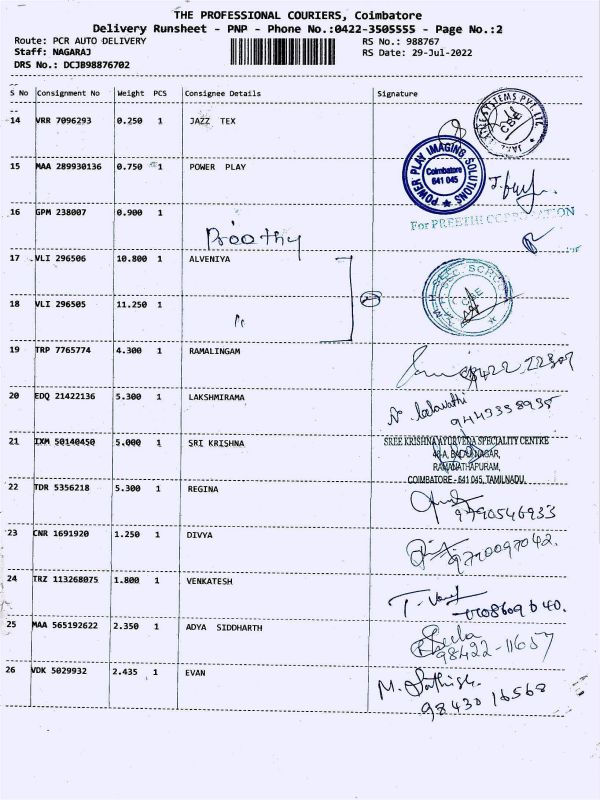 THE PROFESSIONAL COURIERS, Coimbatore
Delivery Runsheet - PNP - Phone No.:0422-3505555 - Page No.:2
Route: PCR AUTO DELIVERY RS No.: 988767
Staff: NAGARAJ RS Date: 29-Jul-2022
DRS No.: DCJB98876702
S No Consignment No Weight PCS Consignee Details Signature
14 VRR 7096293 0.250 1 JAZZ TEX
15 MAA 289930136 0.750 1 POWER PLAY
POWER PLAY IMAGING SOLUTIONS
Coimbatore
641 045
16 GPM 238007 0.900 1
For PREETHI CORPORATION
17 VLI 296506 10.800 1 ALVENIYA
18 VLI 296505 11.250 1
19 TRP 7765774 4.300 1 RAMALINGAM
20 EDQ 21422136 5.300 1 LAKSHMIRAMA
9443338935
21 IXM 50140450 5.000 1 SRI KRISHNA
SREE KRISHNA AYURVEDA SPECIALITY CENTRE
RAMANATHAPURAM,
COIMBATORE - 641 045, TAMILNADU.
22 TDR 5356218 5.300 1 REGINA
9790546933
23 CNR 1691920 1.250 1 DIVYA
9710097042.
24 TRZ 113268075 1.800 1 VENKATESH
25 MAA 565192622 2.350 1 ADYA SIDDHARTH
98422-11657
26 VDK 5029932 2.435 1 EVAN
M. Sathish.
98430 16568